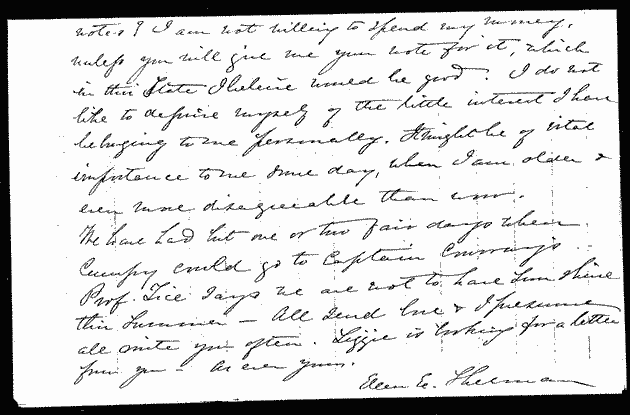 notes? I am not willing to spend my money,
unless you will give me your note for it, which
in this State I believe would be good. I do not
like to deprive myself of the little interest I have
belonging to me personally. It might be of vital
importance to me some day, when I am older &
even more disagreeable than now.
We have had but one or two fair days when
Cumpy could go to Captain
Prof. Tice says we are not to have sun shine
this Summer - All send love & I presume
all write you often. Lizzie is looking for a letter
from you - As ever yours.
Ellen E. Sherman